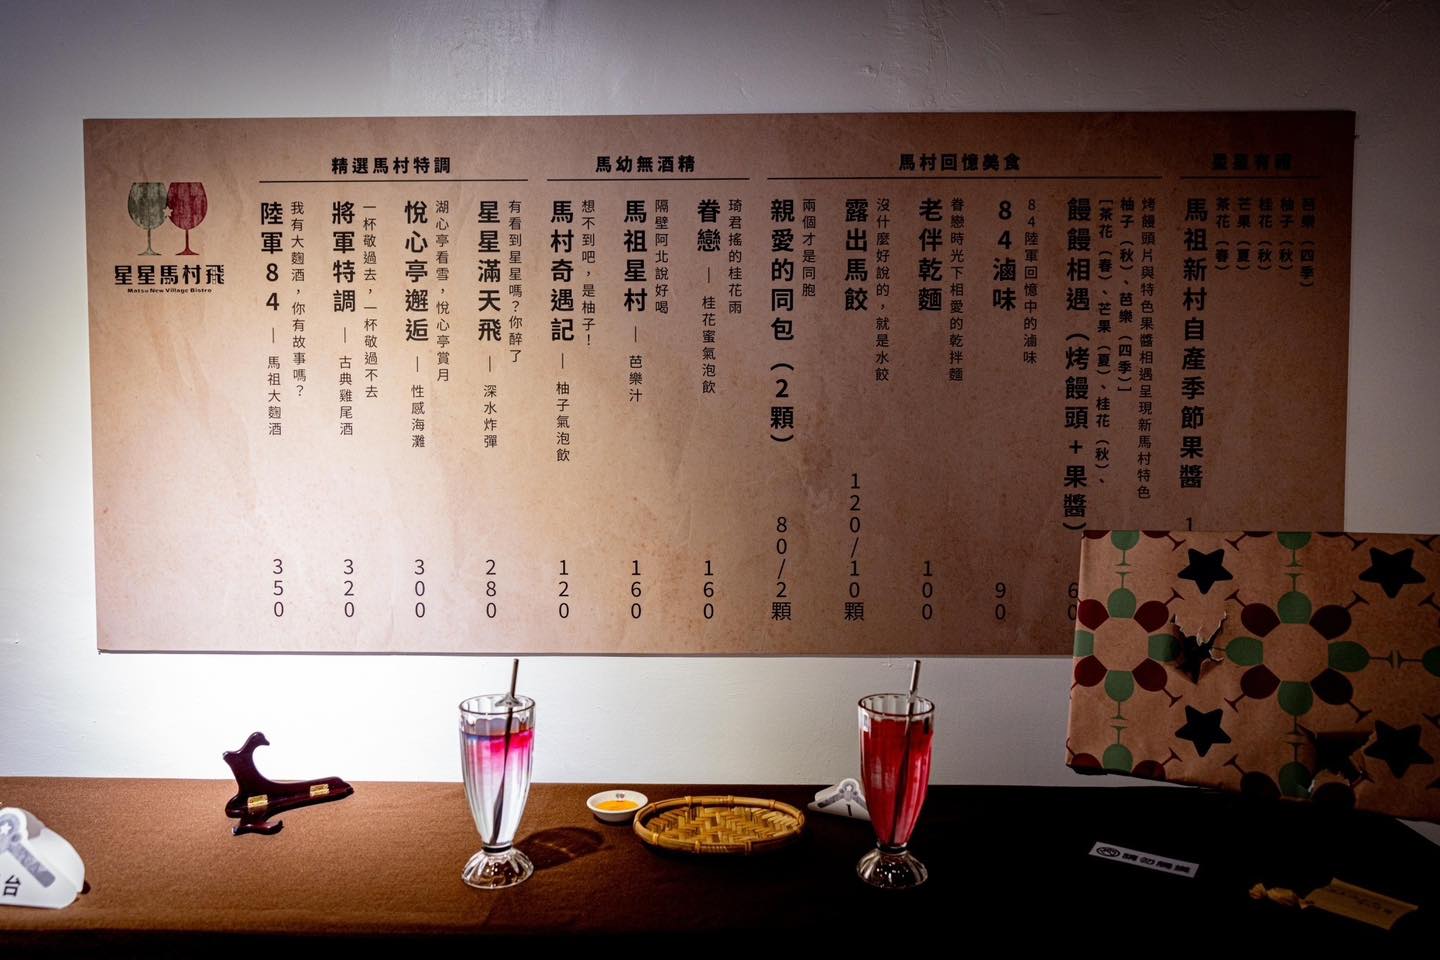 星星馬村飛
Matsu New Village Bistro
精選馬村特調
陸軍84 — 馬祖大麴酒
我有大麴酒，你有故事嗎？
350
將軍特調 — 古典雞尾酒
一杯敬過去，一杯敬過不去
320
悅心亭邂逅 — 性感海灘
湖心亭看雪，悅心亭賞月
300
星星滿天飛 — 深水炸彈
有看到星星嗎？你醉了
280
馬幼無酒精
馬村奇遇記 — 柚子氣泡飲
想不到吧，是柚子！
120
馬祖星村 — 芭樂汁
隔壁阿北說好喝
160
眷戀 — 桂花蜜氣泡飲
琦君搖的桂花雨
160
馬村回憶美食
親愛的同包（2顆）
兩個才是同胞
80/2顆
露出馬餃
沒什麼好說的，就是水餃
120/10顆
老伴乾麵
眷戀時光下相愛的乾拌麵
100
84滷味
84陸軍回憶中的滷味
90
饅饅相遇（烤饅頭＋果醬）
[茶花（春）、芒果（夏）、桂花（秋）、
柚子（秋）、芭樂（四季）]
烤饅頭片與特色果醬相遇呈現新馬村特色
60
馬祖新村自產季節果醬
茶花（春）
芒果（夏）
桂花（秋）
柚子（秋）
芭樂（四季）
1
台